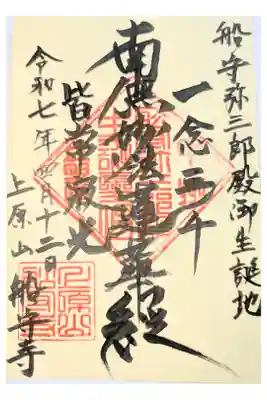 船守弥三郎殿御生誕地
一念三千
南無妙法蓮華経
皆 光
令和七年 月十二日
上原山 船守寺